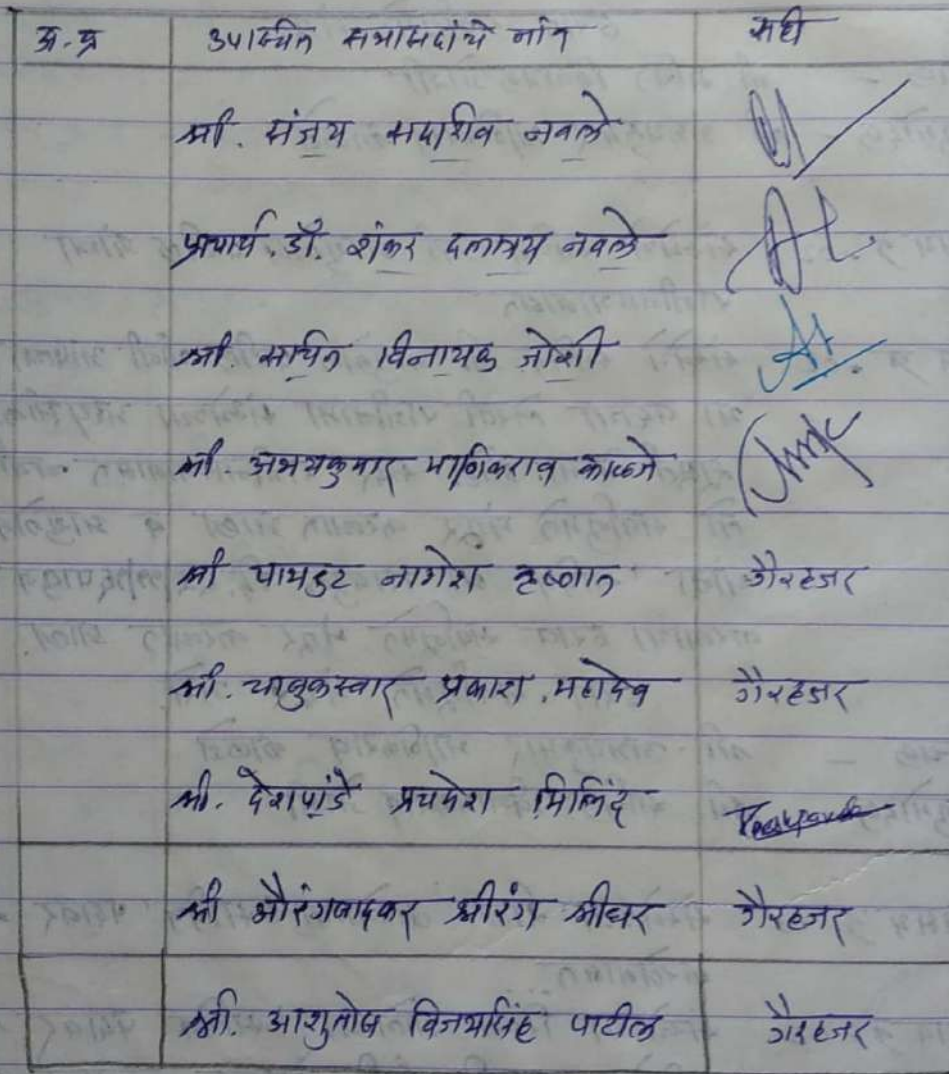 अ.क्र उपस्थित सभासदांचे नांव सही
श्री. संजय सदाशिव नवले
प्राचार्य. डॉ. शंकर दत्तात्रय नवले
श्री. सचिन विनायक जोशी
श्री. अभयकुमार माणिकराव काळजे
श्री नागेश गैरहजर
श्री. चाबुकस्वार प्रकाश महादेव गैरहजर
श्री. देशपांडे प्रथमेश मिलिंद
श्री औरंगबादकर श्रीरंग श्रीधर गैरहजर
श्री. आशुतोष विजयसिंह पाटील गैरहजर